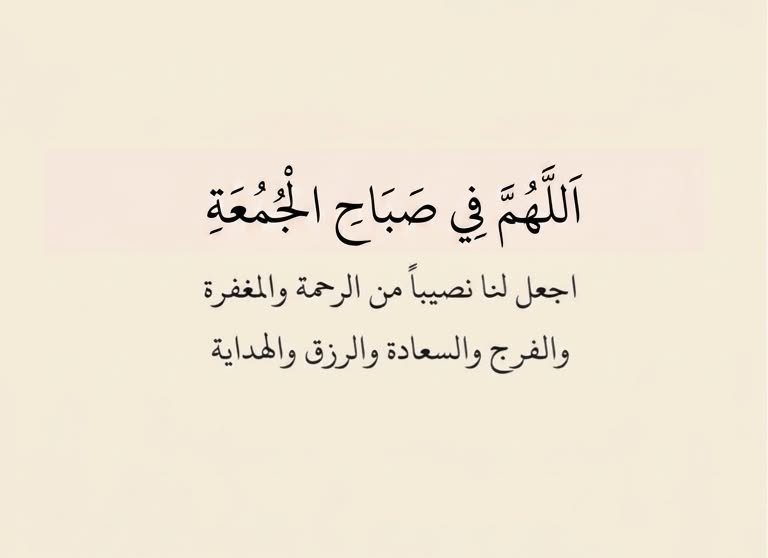 اَللَّهُمَّ فِي صَبَاحِ الْجُمُعَةِ
اجعل لنا نصيباً من الرحمة والمغفرة
والفرج والسعادة والرزق والهداية